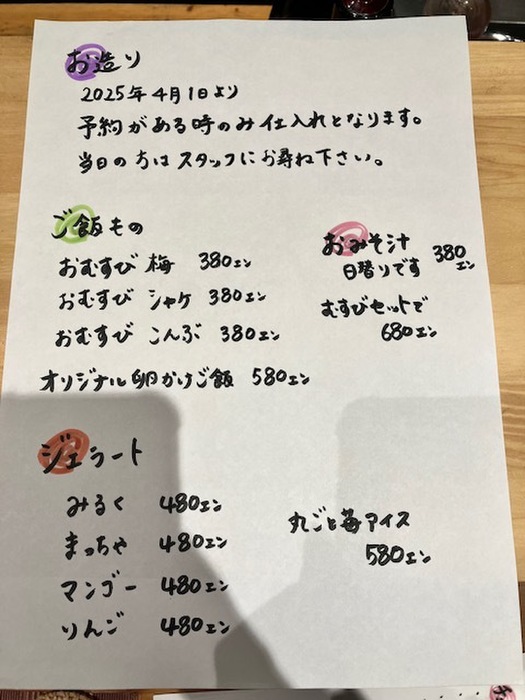 お造り
2025年4月1日より
予約がある時のみ仕入れとなります。
当日の方はスタッフにお尋ね下さい。
ご飯もの
おむすび 梅 380エン
おむすび シャケ 380エン
おむすび こんぶ 380エン
オリジナル卵かけご飯 580エン
おみそ汁 380エン
日替りです
むすびセットで
680エン
ジェラート
みるく 480エン
まっちゃ 480エン
マンゴー 480エン
りんご 480エン
丸ごと苺アイス
580エン